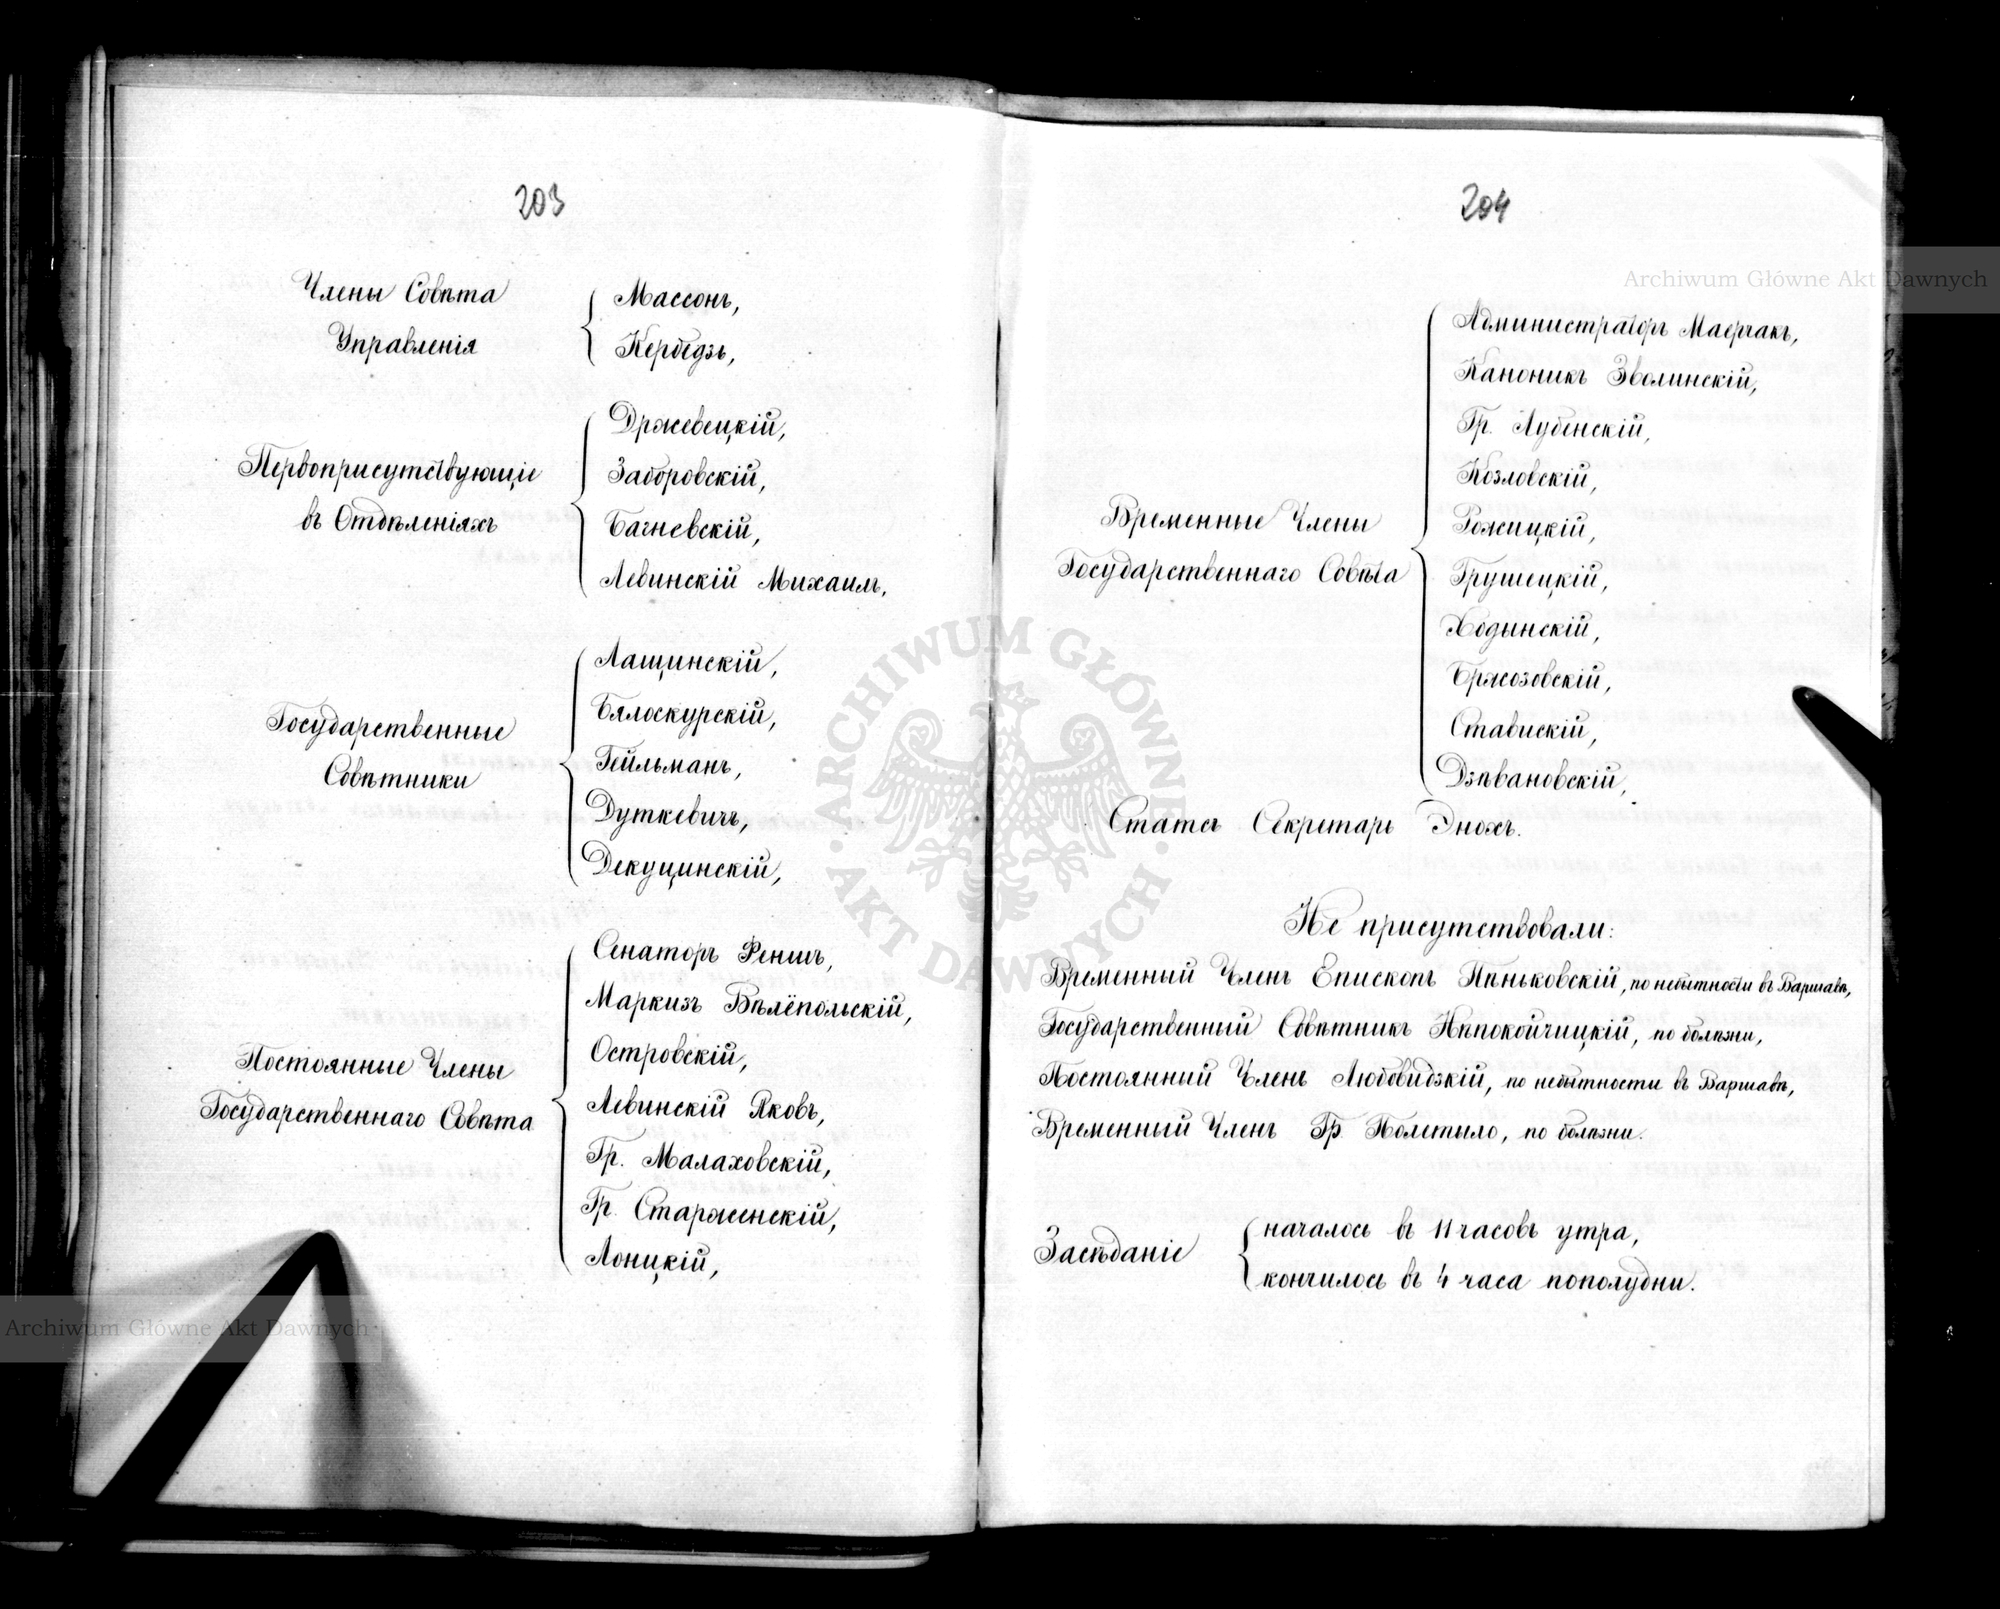 203
Члены Совѣта
Управленія
Массонъ,
Кербедзъ,
Первоприсутствующіе
въ Отдѣленіяхъ
Држевецкій,
Заборовскій,
Багневскій,
Левинскій Михаилъ,
Государственные
Совѣтники
Лащинскій,
Бялоскурскій,
Гейльманъ,
Дуткевичъ,
Декуцинскій,
Постоянные Члены
Государственнаго Совѣта
Сенаторъ Феншъ,
Маркизъ Вѣлёпольскій,
Островскій,
Левинскій Яковъ,
Гр. Малаховскій,
Гр. Старженскій,
Лоницкій,
204
Временные Члены
Государственнаго Совѣта
Администраторъ Маерчакъ,
Каноникъ Зволинскій,
Гр. Лубенскій,
Козловскій,
Рожицкій,
Грушецкій,
Ходынскій,
Бржозовскій,
Стависскій,
Дзѣвановскій,
Статсъ Секретарь Энохъ.
Не присутствовали:
Временный Членъ Епископъ Пѣньковскій, по небытности въ Варшавѣ,
Государственный Совѣтникъ Нѣпокойчицкій, по болѣзни,
Постоянный Членъ Любовидзкій, по небытности въ Варшавѣ,
Временный Членъ Гр. Полетыло, по болѣзни.
Засѣданіе
началось въ 11 часовъ утра,
кончилось въ 4 часа пополудни.
Archiwum Główne Akt Dawnych
Archiwum Główne Akt Dawnych
ARCHIWUM GŁÓWNE
AKT DAWNYCH